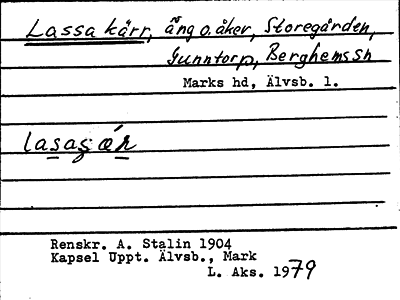 Lassa kärr, äng o. åker, Storegården,
Gunntorp, Berghems sn
Marks hd, Älvsb. l.
Renskr. A. Stalin 1904
Kapsel Uppt. Älvsb., Mark
L. Aks. 1979